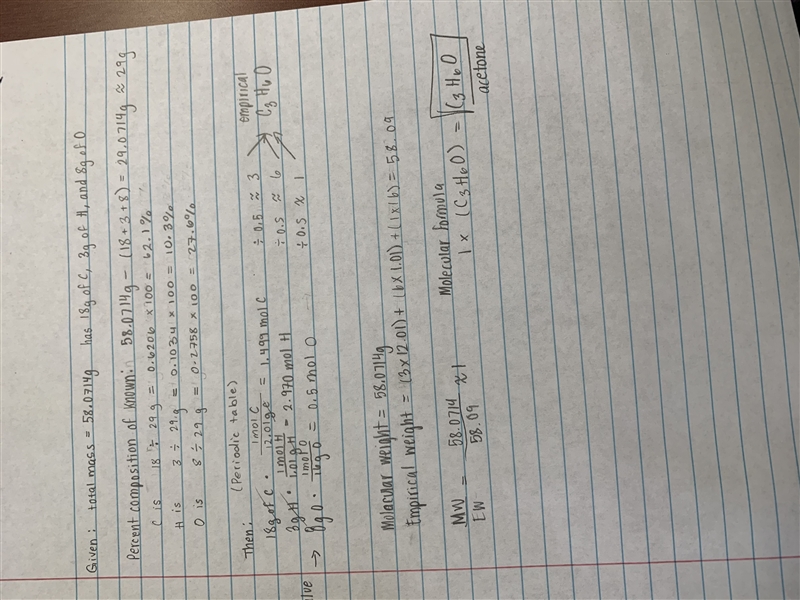 Given: total mass = 58.0714g has 18g of C, 3g of H, and 8g of O
Percent composition of known: 58.0714g - (18+3+8) = 29.0714g ≈ 29g
C is 18 ÷ 29g = 0.6206 × 100 = 62.1%
H is 3 ÷ 29.g = 0.1034 × 100 = 10.3%
O is 8 ÷ 29 g = 0.2758 × 100 = 27.6%
(Periodic table)
Then: 18g of C · 1mol C / 12.01g C = 1.499 mol C ÷ 0.5 ≈ 3 empirical
3g H · 1mol H / 1.01g H = 2.970 mol H ÷ 0.5 ≈ 6 C3H6O
→ 8g O · 1mol O / 16g O = 0.5 mol O ÷ 0.5 ≈ 1
Molacular weight = 58.0714g
Empirical weight = (3×12.01) + (6×1.01) + (1×16) = 58.09
MW / EW = 58.0714 / 58.09 ≈ 1
Molecular formula
1 × (C3H6O) = C3H6O
acetone